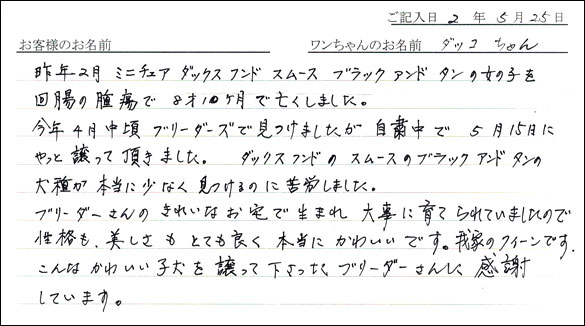 ご記入日 2 年 5 月 25 日
お客様のお名前 ワンちゃんのお名前 ダッコ ちゃん
昨年2月 ミニチュア ダックス フンド スムース ブラック アンド タンの女の子を
回腸の腫瘍で 8才10ヶ月で亡くしました。
今年4月中頃 ブリーダーズで見つけましたが 自粛中で 5月15日に
やっと譲って頂きました。 ダックスフンドの スムースのブラック アンド タンの
犬種が 本当に少なく見つけるのに苦労しました。
ブリーダーさんの きれいなお宅で生まれ 大事に育てられていましたので
性格も、美しさも とても良く 本当に かわいいです。我家のクィーンです。
こんな かわいい 子犬を 譲って 下さった ブリーダーさんに 感謝
しています。